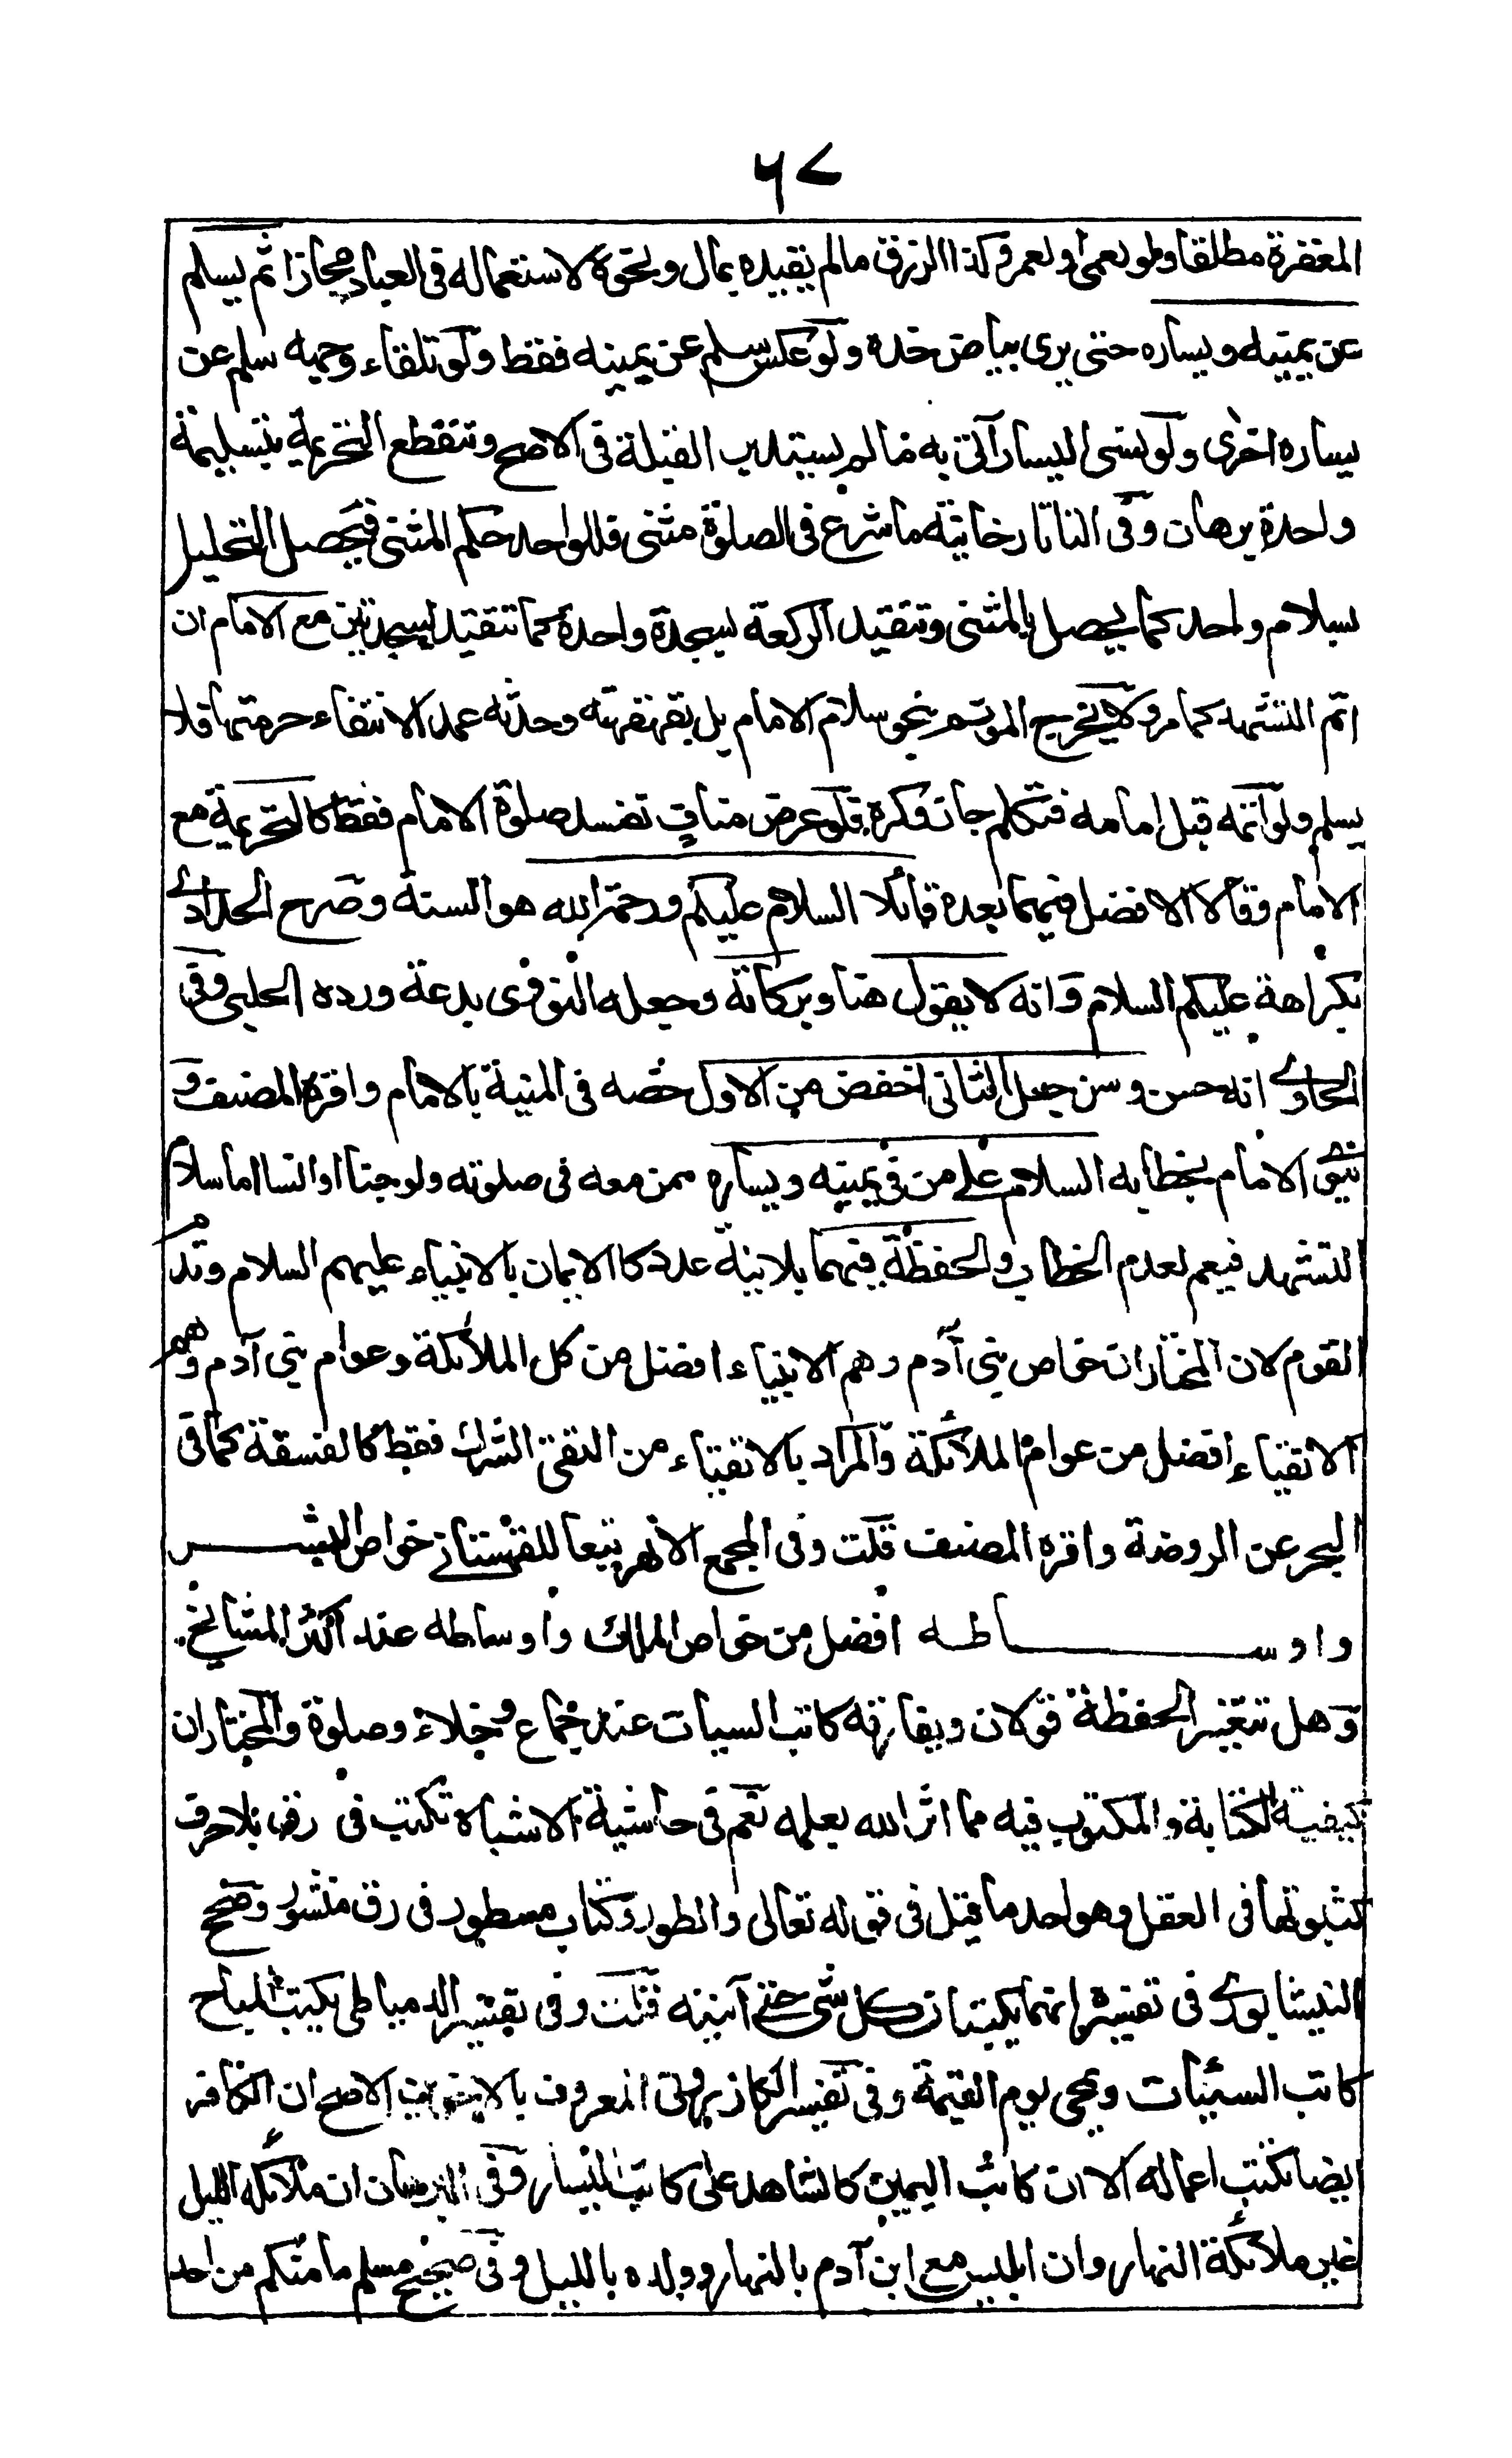 ۶۷
المغفرة مطلقا ولو لعمى او لعمرو كذا الرزق مالم يقيده بمال ونحوه لاستعماله فى العباد مجازا ثم يسلم
عن يمينه ويساره حتى يرى بياض خده ولو عكس سلم عن يمينه فقط ولو تلقاء وجهه سلم عن
يساره اخرى ولو نسى اليسار آتى به ما لم يستدبر القبلة فى الاصح وتنقطع التحريمة بتسليمة
واحدة برهان وفى التاتارخانيه ما شرع فى الصلوة مثنى فللواحد حكم المثنى فيحصل التحليل
بسلام واحد كما يحصل بالمثنى وتتقيد الركعة بسجدة واحدة كما تتقيد بسجدتين مع الامام ان
اتم التشهد كما مر ولا يخرج الموتم بنحو سلام الامام بل بقهقهته وحدثه عمدا لانتفاء حرمتها فلا
يسلم ولو اتمه قبل امامه فتكلم جاز وكره فلو عرض مناف تفسد صلوة الامام فقط كالتحريمة مع
الامام وقالا الافضل فيهما بعده قائلا السلام عليكم ورحمة الله هو السنة وصرح الحدادى
بكراهة عليكم السلام وانه لا يقول هنا وبركاته وجعله النووى بدعة ورده الحلبى وفى
الحاوى انه حسن وسن جعل الثانى اخفض من الاول خصه فى المنية بالامام واقره المصنف و
ينوى الامام بخطابه السلام على من فى يمينه ويساره ممن معه فى صلوته ولو جنا او نسا اما سلام
التشهد فيعم لعدم الخطاب والحفظة فيهما بلا نية عدد كالايمان بالانبياء عليهم السلام وقدم
القوم لان المختار ان خواص بنى آدم وهم الانبياء افضل من كل الملائكة وعوام بنى آدم وهم
الاتقياء افضل من عوام الملائكة والمراد بالاتقياء من اتقى الشرك فقط كالفسقة كما فى
البحر عن الروضة واقره المصنف قلت وفى المجمع الانهر تبعا للقهستانى خواص البشر
واوساطه افضل من خواص الملك واوساطه عند اكثر المشايخ
وهل تتغير الحفظة قولان ويفارقه كاتب السيات عند جماع وخلاء وصلوة والمختار ان
كيفية الكتابة والمكتوب فيه مما استاثر الله بعلمه نعم فى حاشية الاشباه تكتب فى رق بلا حرف
كثبوتها فى العقل وهو احد ما قيل فى قوله تعالى والطور وكتاب مسطور فى رق منشور وصحح
النيسابورى فى تفسيره انهما يكتبان كل شى حتى آنينه قلت وفى تفسير الدمياطى يكتب المباح
كاتب السيئات ويمحى يوم القيمة وفى تفسير الكازرونى المعروف بالاخوين الاصح ان الكافر
ايضا تكتب اعماله الا ان كاتب اليمين كالشاهد على كاتب اليسار وفى البرهان ان ملائكة الليل
غير ملائكة النهار وان ابليس مع ابن آدم بالنهار وولده بالليل وفى صحيح مسلم ما منكم من احد